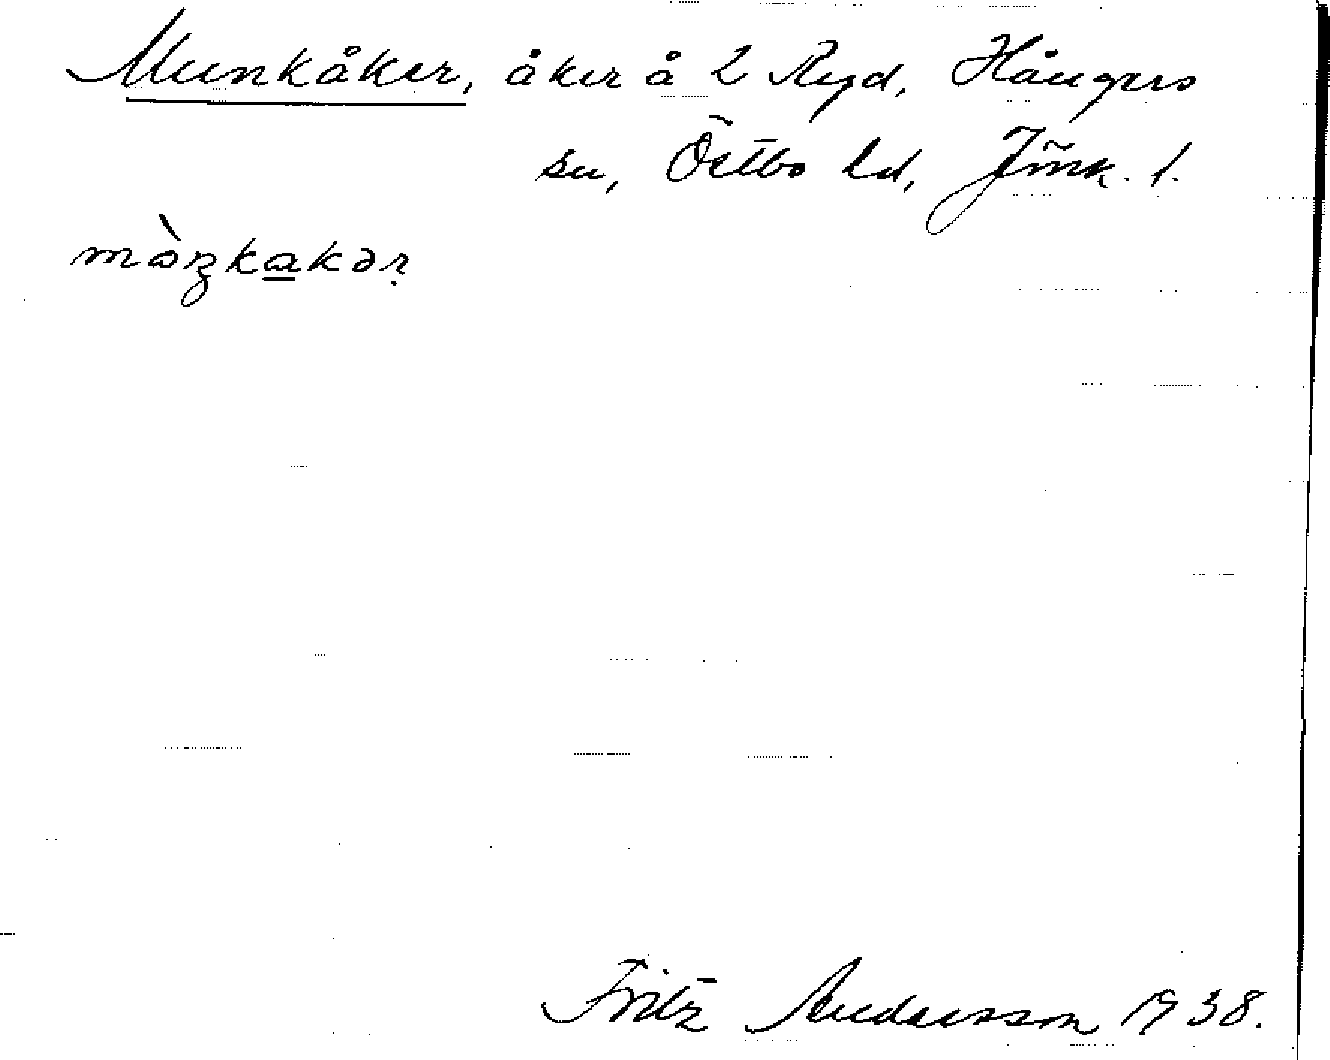 Munkåker, åker å 2 Ryd, Hångers
sn, Östbo hd, Jönk. l.
mòŋkakər
Fritz Andersson 1938.